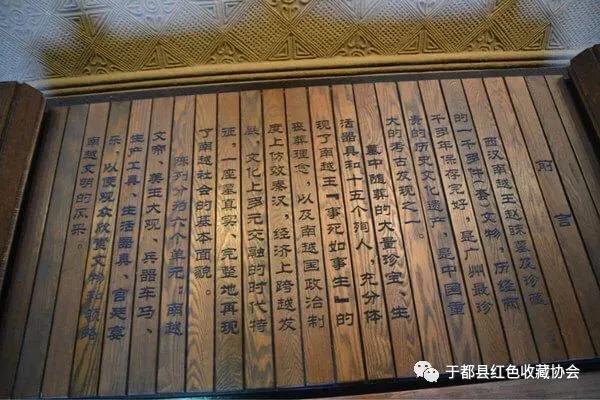 前言
西汉南越王赵眜墓及珍藏
的一千多件(套)文物,历经两
千多年保存完好,是广州最珍
贵的历史文化遗产,是中国重
大的考古发现之一。
墓中随葬的大量珍宝、生
活器具和十五个殉人,充分体
现了南越王“事死如事生”的
丧葬理念,以及南越国政治制
度上仿效秦汉,经济上跨越发
展,文化上多元交融的时代特
征,一座墓真实、完整地再现
了南越社会的基本面貌。
陈列分为六个单元:南越
文帝、美玉大观、兵器车马、
生产工具、生活器具、宫廷宴
乐,以便观众欣赏文物和领略
南越文明的风采。
于都县红色收藏协会